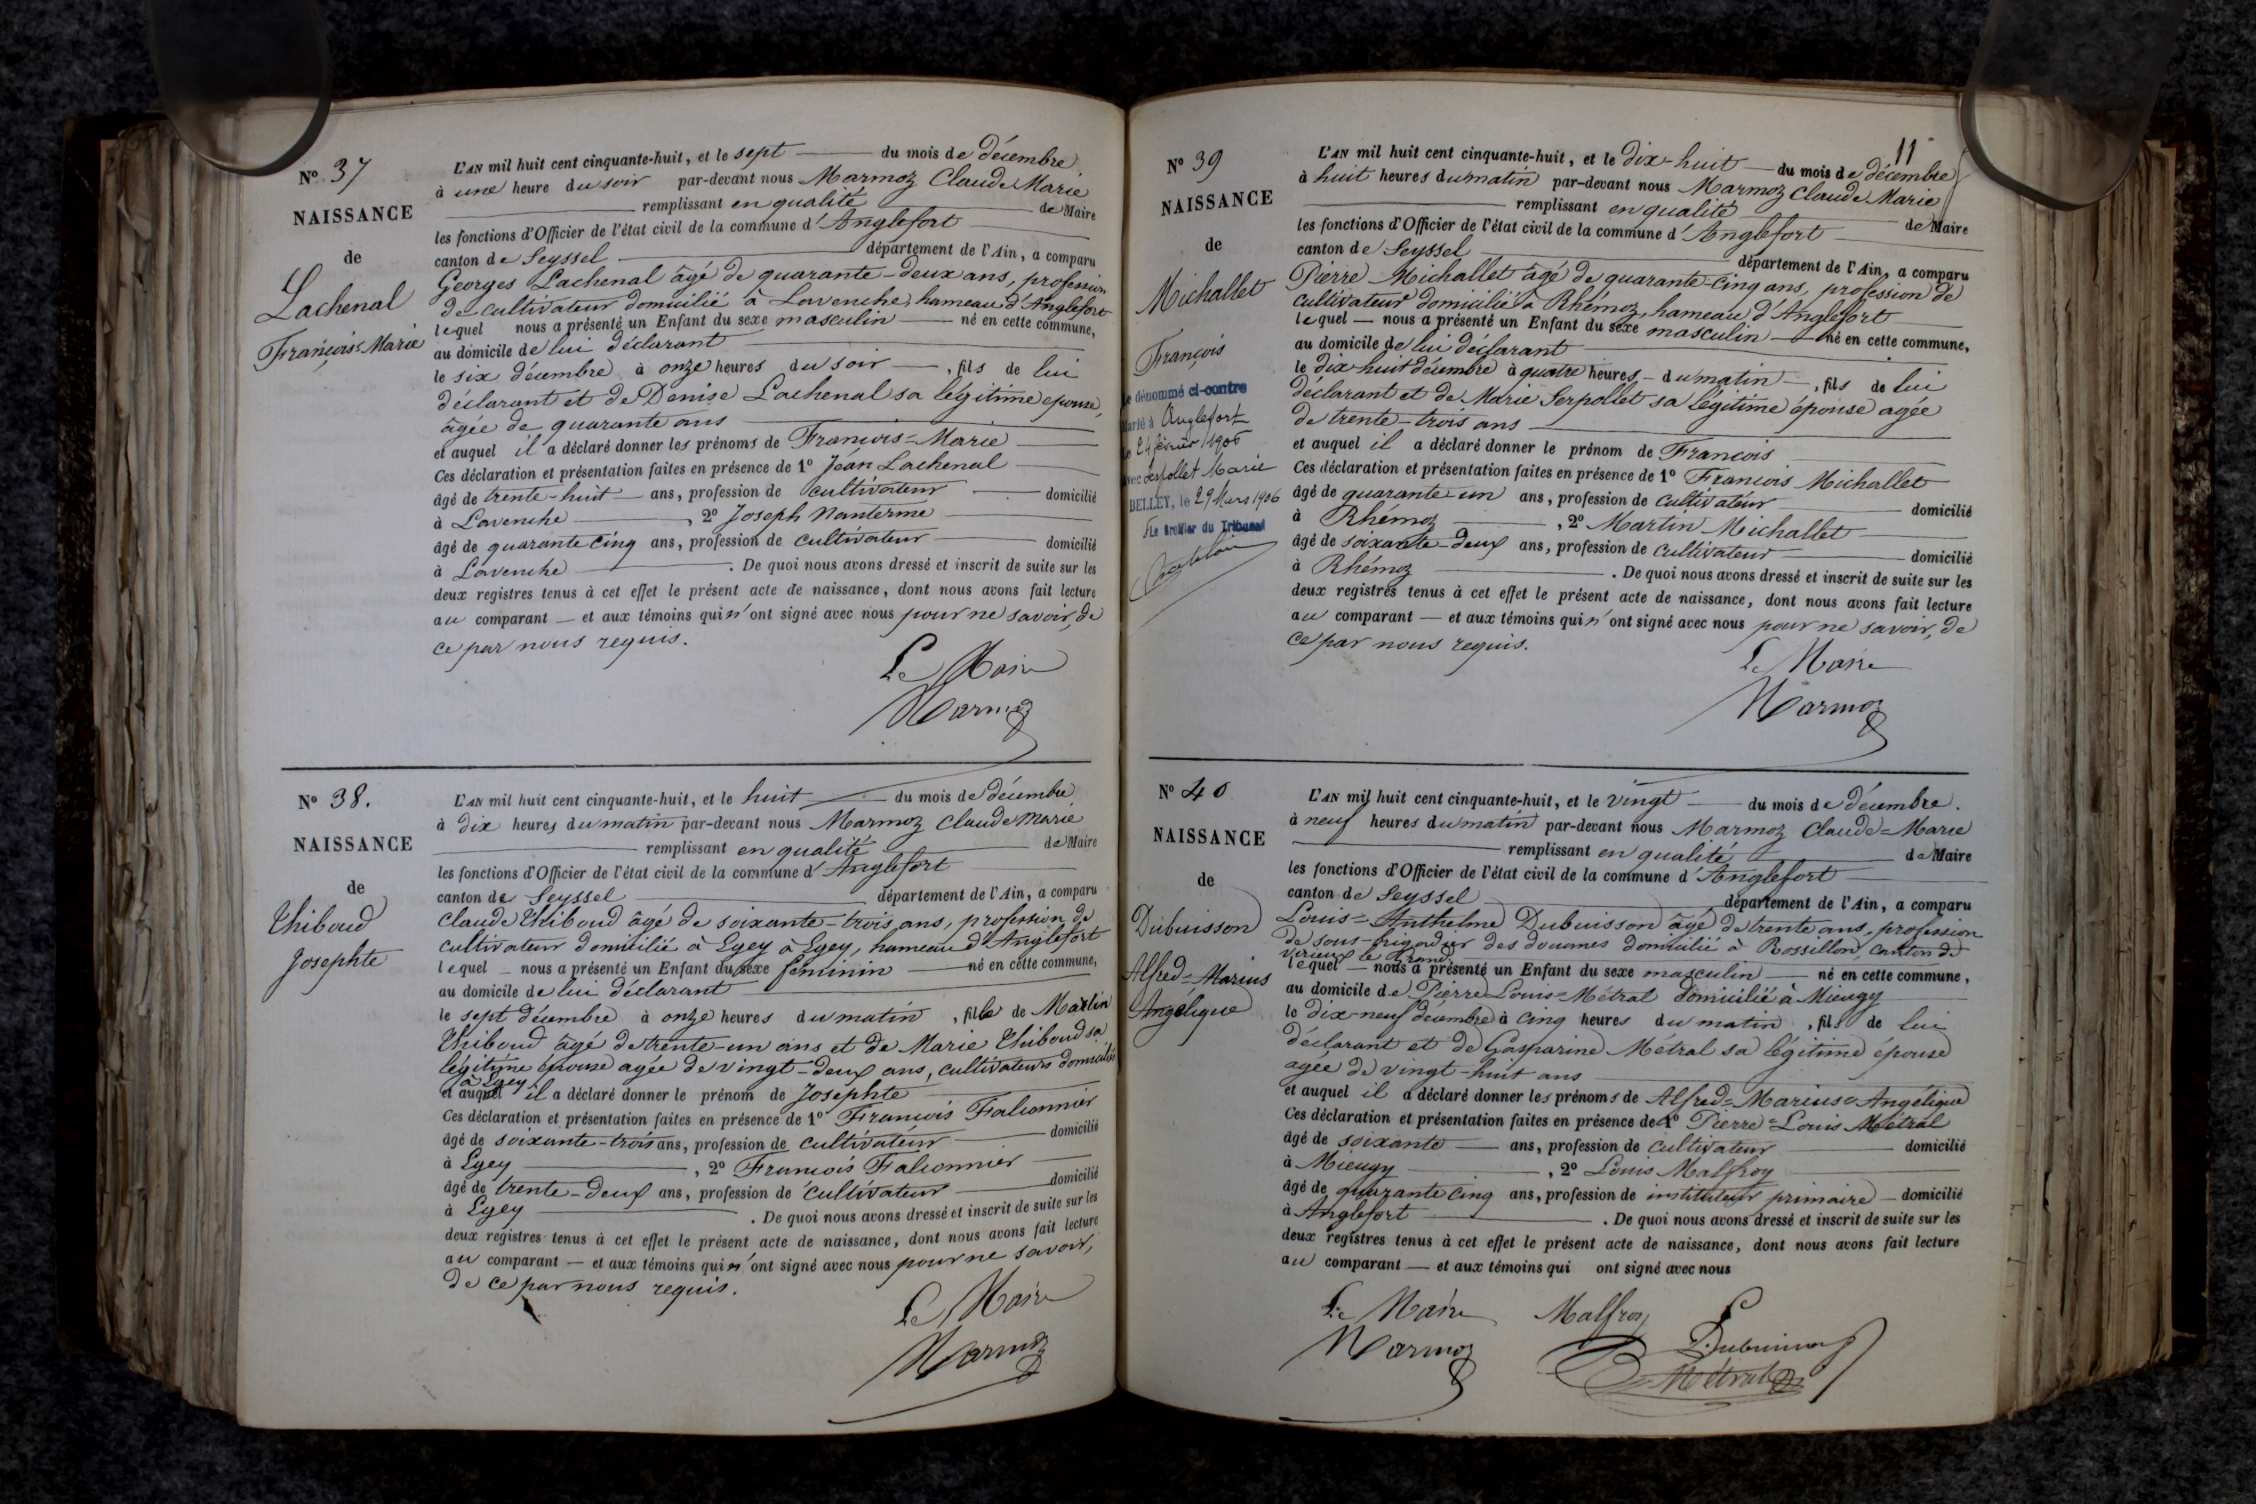 N° 37
NAISSANCE
de
Lachenal
François-Marie
L'AN mil huit cent cinquante-huit, et le sept du mois de décembre
à une heure du soir par-devant nous Marmoz Claude Marie
remplissant en qualité de Maire
les fonctions d'Officier de l'état civil de la commune d'Anglefort
canton de Seyssel département de l'Ain, a comparu
Georges Lachenal âgé de quarante-deux ans, profession
de cultivateur domicilié à Lavenche, hameau d'Anglefort
lequel nous a présenté un Enfant du sexe masculin né en cette commune,
au domicile de lui déclarant
le six décembre à onze heures du soir, fils de lui
déclarant et de Denise Lachenal sa légitime epouse,
âgée de quarante ans
et auquel il a déclaré donner les prénoms de François=Marie
Ces déclaration et présentation faites en présence de 1° Jéan Lachenal
âgé de trente-huit ans, profession de cultivateur domicilié
à Lavenche, 2° Joseph Nanterme
âgé de quarante cinq ans, profession de cultivateur domicilié
à Lavenche. De quoi nous avons dressé et inscrit de suite sur les
deux registres tenus à cet effet le présent acte de naissance, dont nous avons fait lecture
au comparant — et aux témoins qui n'ont signé avec nous pour ne savoir, de
ce par nous requis.
Le Maire
Marmoz
N° 38.
NAISSANCE
de
Thiboud
Josephte
L'AN mil huit cent cinquante-huit, et le huit du mois de décembre
à dix heures du matin par-devant nous Marmoz Claude Marie
remplissant en qualité de Maire
les fonctions d'Officier de l'état civil de la commune d'Anglefort
canton de Seyssel département de l'Ain, a comparu
Claude Thiboud âgé de soixante-trois ans, profession de
cultivateur domicilié à Eyey à Eyey, hameau d'Anglefort
lequel — nous a présenté un Enfant du sexe féminin né en cette commune,
au domicile de lui déclarant
le sept décembre à onze heures du matin, fille de Martin
Thiboud âgé de trente-un ans et de Marie Thiboud sa
légitime épouse agée de vingt-deux ans, cultivateurs domiciliés
à Eyey
et auquel il a déclaré donner le prénom de Josephte
Ces déclaration et présentation faites en présence de 1° François Falconnier
âgé de soixante-trois ans, profession de cultivateur domicilié
à Eyey, 2° François Falconnier
âgé de trente-deux ans, profession de cultivateur domicilié
à Eyey. De quoi nous avons dressé et inscrit de suite sur les
deux registres tenus à cet effet le présent acte de naissance, dont nous avons fait lecture
au comparant — et aux témoins qui n'ont signé avec nous pour ne savoir,
de ce par nous requis.
Le Maire
Marmoz
11
N° 39
NAISSANCE
de
Michallet
François
Le dénommé ci-contre
marié à Anglefort
le 24 février 1906
avec Serpollet Marie
BELLEY, le 29 Mars 1906
Le Greffier du Tribunal
L'AN mil huit cent cinquante-huit, et le dix-huit du mois de décembre
à huit heures du matin par-devant nous Marmoz Claude Marie
remplissant en qualité de Maire
les fonctions d'Officier de l'état civil de la commune d'Anglefort
canton de Seyssel département de l'Ain, a comparu
Pierre Michallet âgé de quarante-cinq ans, profession de
cultivateur domicilié à Rhémoz, hameau d'Anglefort
lequel — nous a présenté un Enfant du sexe masculin né en cette commune,
au domicile de lui déclarant
le dix-huit décembre à quatre heures - du matin, fils de lui
déclarant et de Marie Serpollet sa légitime épouse agée
de trente-trois ans
et auquel il a déclaré donner le prénom de François
Ces déclaration et présentation faites en présence de 1° François Michallet
âgé de quarante-un ans, profession de cultivateur domicilié
à Rhémoz, 2° Martin Michallet
âgé de soixante-deux ans, profession de cultivateur domicilié
à Rhémoz. De quoi nous avons dressé et inscrit de suite sur les
deux registres tenus à cet effet le présent acte de naissance, dont nous avons fait lecture
au comparant — et aux témoins qui n'ont signé avec nous pour ne savoir, de
ce par nous requis.
Le Maire
Marmoz
N° 40
NAISSANCE
de
Dubuisson
Alfred=Marius
Angélique
L'AN mil huit cent cinquante-huit, et le vingt du mois de décembre.
à neuf heures du matin par-devant nous Marmoz Claude=Marie
remplissant en qualité de Maire
les fonctions d'Officier de l'état civil de la commune d'Anglefort
canton de Seyssel département de l'Ain, a comparu
Louis=Anthelme Dubuisson âgé de trente ans, profession
de sous-brigadier des douanes domicilié à Rossillon, canton de
virieux le Grand
lequel — nous a présenté un Enfant du sexe masculin né en cette commune,
au domicile de Pierre Louis=Métral domicilié à Mieugy
le dix-neuf décembre à cinq heures du matin, fils de lui
déclarant et de Gasparine Métral sa légitime épouse
agée de vingt-huit ans
et auquel il a déclaré donner les prénoms de Alfred=Marius=Angélique
Ces déclaration et présentation faites en présence de 1° Pierre=Louis Métral
âgé de soixante ans, profession de cultivateur domicilié
à Mieugy, 2° Louis Malfroy
âgé de quarante cinq ans, profession de instituteur primaire domicilié
à Anglefort. De quoi nous avons dressé et inscrit de suite sur les
deux registres tenus à cet effet le présent acte de naissance, dont nous avons fait lecture
au comparant — et aux témoins qui ont signé avec nous
Le Maire Malfroy
Marmoz Dubuisson
Métral